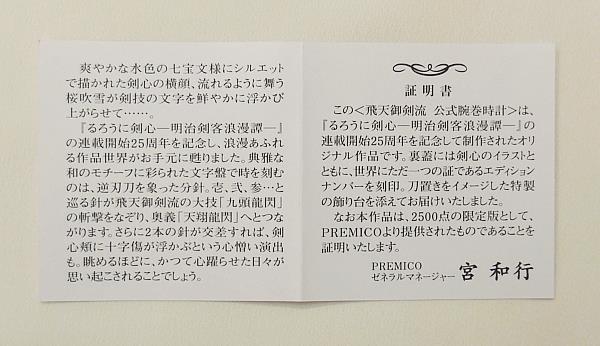 爽やかな水色の七宝文様にシルエット
で描かれた剣心の横顔、流れるように舞う
桜吹雪が剣技の文字を鮮やかに浮かび
上がらせて……。
『るろうに剣心―明治剣客浪漫譚―』
の連載開始25周年を記念し、浪漫あふれ
る作品世界がお手元に甦りました。典雅な
和のモチーフに彩られた文字盤で時を刻む
のは、逆刃刀を象った分針。壱、弐、参…と
巡る針が飛天御剣流の大技「九頭龍閃」
の斬撃をなぞり、奥義「天翔龍閃」へとつな
がります。さらに2本の針が交差すれば、剣
心頬に十字傷が浮かぶという心憎い演出
も。眺めるほどに、かつて心躍らせた日々が
思い起こされることでしょう。
証明書
この＜飛天御剣流 公式腕巻時計＞は、
『るろうに剣心―明治剣客浪漫譚―』の
連載開始25周年を記念して制作されたオリ
ジナル作品です。裏蓋には剣心のイラストと
ともに、世界にただ一つの証であるエディション
ナンバーを刻印。刀置きをイメージした特製
の飾り台を添えてお届けいたしました。
なお本作品は、2500点の限定版として、
PREMICOより提供されたものであることを
証明いたします。
PREMICO
ゼネラルマネージャー 宮 和行